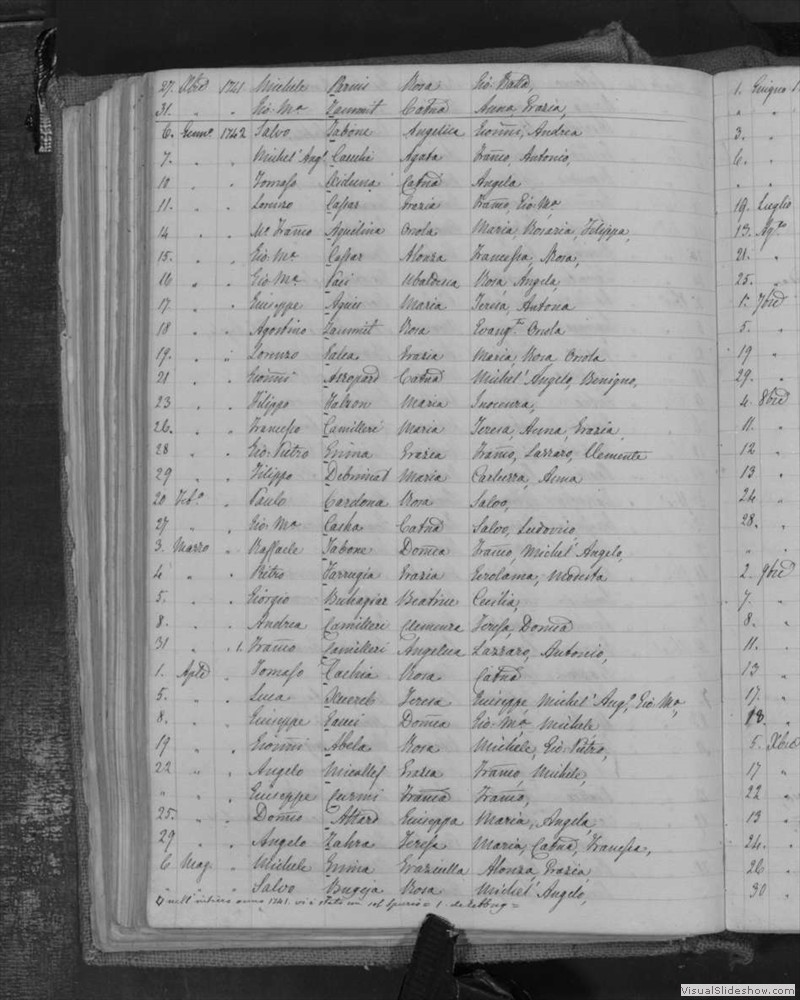 27. Xbre 1741 Michele Rosa Gio: Batta,
31. " " Gio: Ma Zammit Catna Anna, Grazia,
6. Genno 1742 Salvo Tabone Angelica Gionni, Andrea
7. " " Michel' Ango Agata Franco, Antonio,
10 " " Tomaso Xiduna Catna Angela
11. " " Lorenzo Caspar Grazia Franco, Gio: Ma
14 " " Ma Franco Aquilina Orsola Maria, Rosaria, Filippa,
15. " " Gio: Ma Caspar Alonza Francesca, Rosa,
16 " " Gio: Ma Ubaldesca Rosa, Angela,
17. " " Giuseppe Agius Maria Teresa, Antona
18 " " Agostino Zammit Rosa Evangta Orsola
19. " " Lorenzo Galea Grazia Maria, Rosa, Orsola
21 " " Gionni Axopard Catna Michel' Angelo, Benigno,
23 " " Filippo Falzon Maria
26. " " Francesco Camilleri Maria Teresa, Anna, Grazia,
28 " " Gio: Pietro Enina Grazia Franco, Lazzaro, Clemente
29 " " Filippo Maria Catterra, Anna
20 Febo " Paulo Cardona Rosa Salvo,
27 " " Gio: Ma Casha Catna Salvo, Ludovico,
3. Marzo " Raffaele Tabone Domca Franco, Michel' Angelo,
4 " " Pietro Farrugia Grazia Gerolama, Modesta
5. " " Giorgio Buhagiar Beatrice Cecilia,
8. " " Andrea Camilleri Clemenza Teresa, Domca
31 " 1. Franco Camilleri Angelica Lazzaro, Antonio,
1. Aple " Tomaso Cachia Rosa Catna
5. " " Luca Xuereb Teresa Giuseppe, Michel' Ango, Gio: Ma,
8. " " Giuseppe Domca Gio: Ma, Michele
19 " " Gionni Abela Rosa Michele, Gio: Pietro,
22 " " Angelo Micallef Grazia Franco, Michele,
" " " Giuseppe Curmi Franca Franco,
25. " " Domco Attard Giuseppa Maria, Angela
29 " " Angelo Zahra Teresa Maria, Catna, Francesca,
6 Mag. " Michele Enina Graziulla Alonza, Grazia
" " " Salvo Bugeja Rosa Michel' Angelo,
nell' intiero anno 1741. vi è stato un sol spurio = 1. de Zebbug =
1. Giugno
" "
3. "
6. "
" "
19. Luglio
13. Agto
21. "
25. "
1. 7bre
5. "
19 "
29. "
4. 8bre
11. "
12 "
13 "
24 "
28. "
" "
2. 9bre
7. "
8. "
11. "
13 "
17. "
18. "
5. Xbre
17 "
22 "
13 "
24. "
26 "
30 "
VisualSlideshow.com